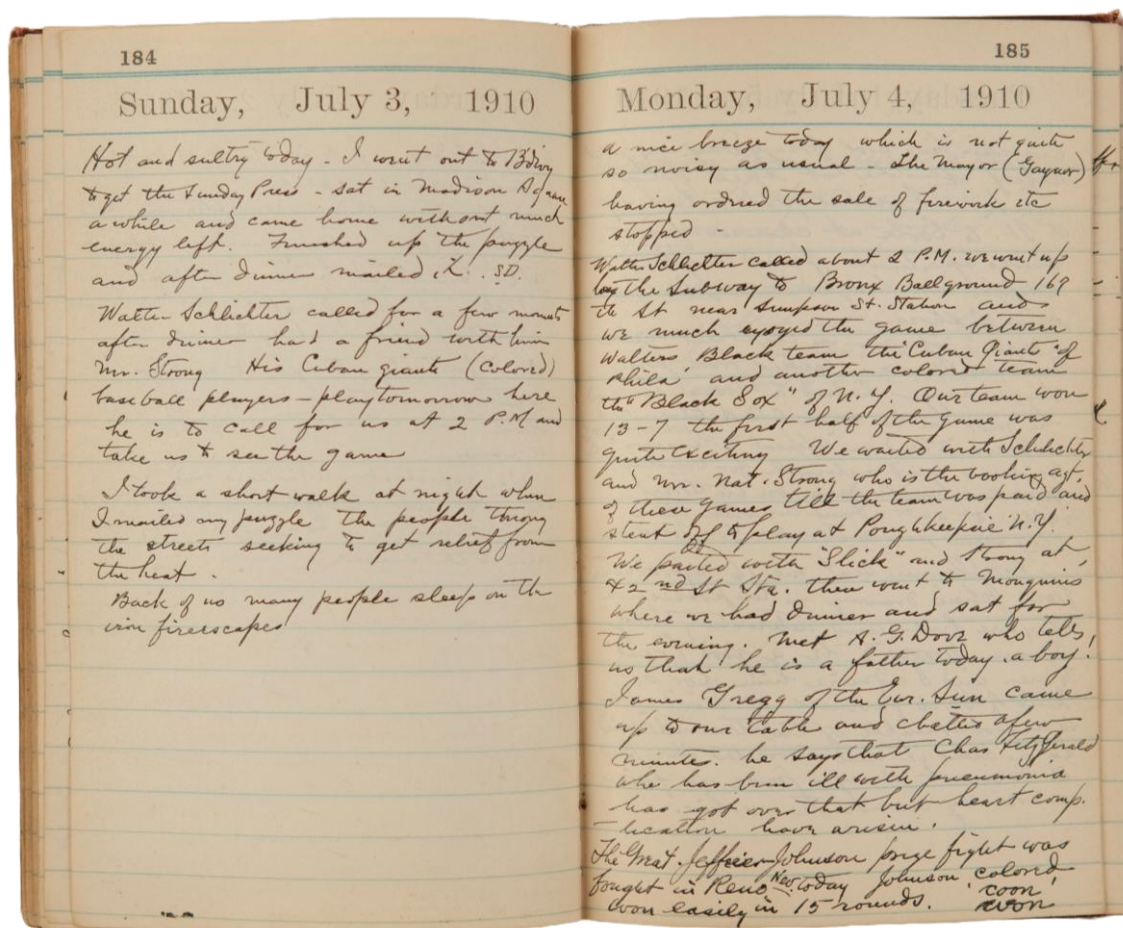 184
Sunday, July 3, 1910
Hot and sultry today - I went out to Bdwy
to get the Sunday Press - sat in Madison Square
awhile and came home without much
energy left. Finished up the puzzle
and after dinner mailed it.
Walter Schlichter called for a few moments
after dinner had a friend with him
Mr. Strong His Cuban giants (colored)
baseball players - play tomorrow here
he is to call for us at 2 P.M and
take us to see the game
I took a short walk at night when
I mailed my puzzle the people throng
the streets seeking to get relief from
the heat.
Back of us many people sleep on the
iron firescapes
185
Monday, July 4, 1910
a nice breeze today which is not quite
so noisy as usual - The Mayor (Gaynor)
having ordered the sale of firework etc
stopped -
Walter Schlichter called about 2 P.M. we went up
the Subway to Bronx Ballground 169
th St near Simpson St. Station and
we much enjoyed the game between
Walters Black team the "Cuban Giants" of
Phila' and another colored team
the "Black Sox" of N.Y. Our team won
13-7 the first half of the game was
quite exciting We waited with Schlichter
and Mr. Nat. Strong who is the booking agt.
of these games till the team was paid and
sent off to play at Poughkeepsie N.Y.
We parted with "Slick" and Strong at
42nd St Sta. then went to Mouquins
where we had dinner and sat for
the evening. Met A. G. Dove who tells
us that he is a father today. a boy!
James Gregg of the Eve. Sun came
up to our table and chatted a few
minutes. he says that Chas FitzGerald
who has been ill with pneumonia
has got over that but heart comp-
-lication have arisin.
The Great Jeffries-Johnson prize fight was
fought in Reno Nev. today Johnson, colored,
won easily in 15 rounds. coon
won